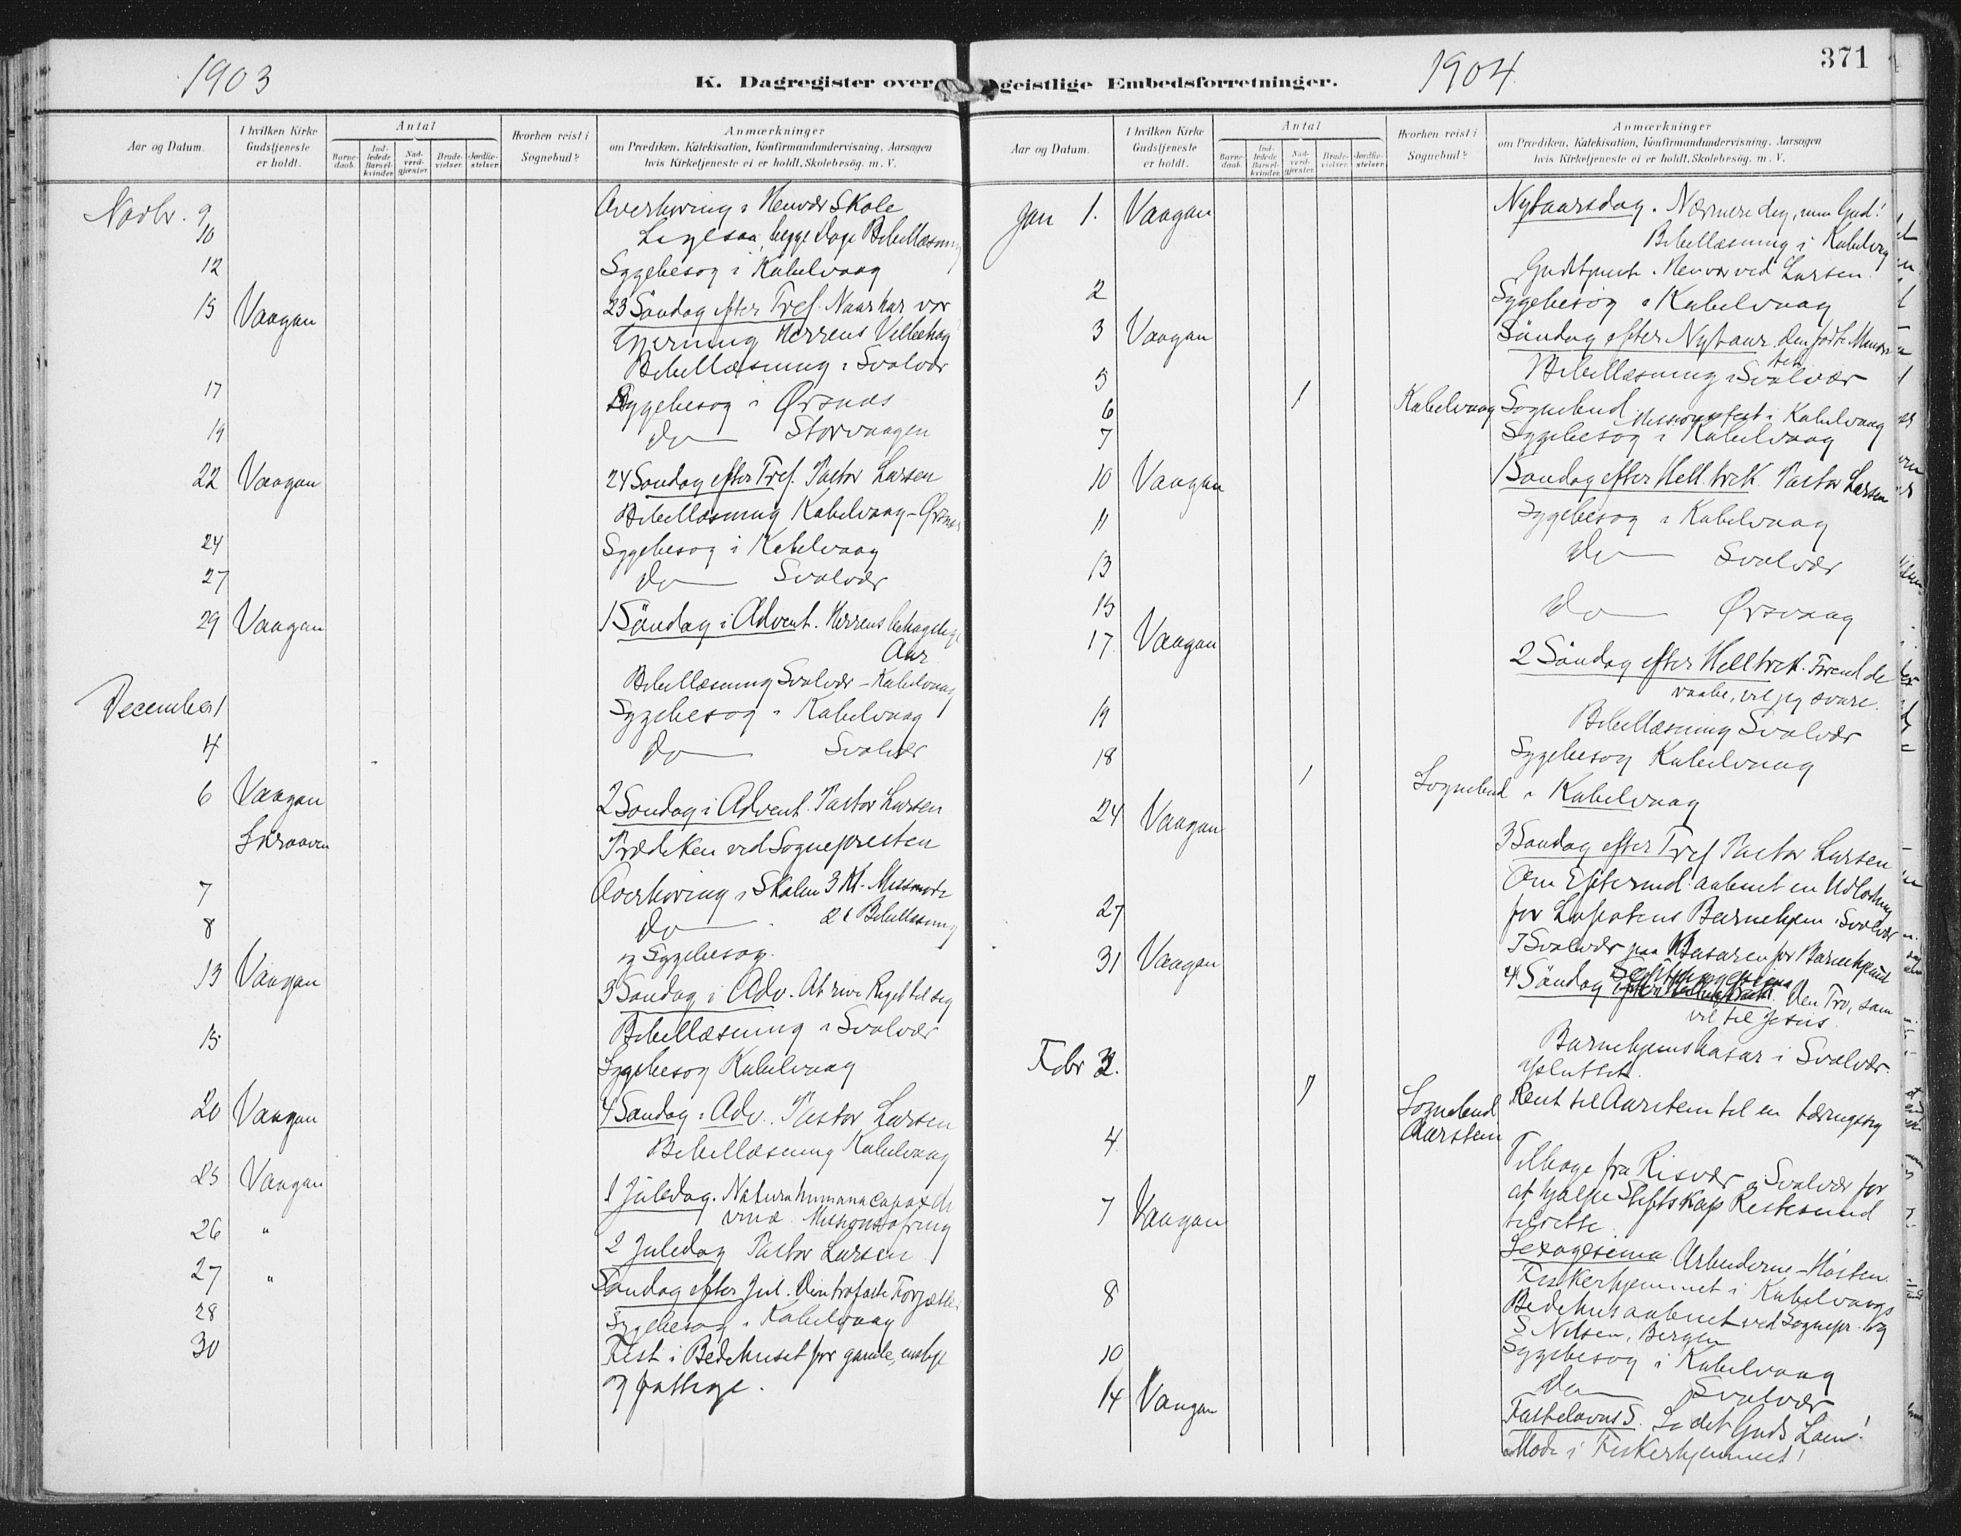 1903
K. Dagregister over
Aar og Datum.
I hvilken Kirke Gudstjeneste er holdt.
Antal
Barnedaab.
Indledede Barselkvinder.
Nadverdgjester.
Brudevielser.
Jordfæstelser.
Hvorhen reist i Sognebud?
Anmærkninger
om Prædiken, Katekisation, Konfirmandundervisning, Aarsagen
hvis Kirketjeneste ei er holdt, Skolebesög. m. V.
Novbr. 9 Overhøring i Henvær Skole
10 Ligesaa, begge Dage Bibellæsning
12 Sygebesøg i Kabelvaag
15 Vaagan 23 Søndag efter Tref. Naar har vor
Gjerning Herrens Velbehag
Bibellæsning i Svolvær
17 Sygebesøg i Ørsnes
19 do Storvaagen
22 Vaagan 24 Søndag efter Tref. Pastor Larsen
Bibellæsning Kabelvaag - Ørsnes
24 Sygebesøg i Kabelvaag
27 do Svolvær
29 Vaagan 1 Søndag i Advent. Herrens behagelige
Aar
Bibellæsning Svolvær - Kabelvaag
December 1 Sygebesøg i Kabelvaag
4 do Svolvær
6 Vaagan 2 Søndag i Advent. Pastor Larsen
Skraaven Prædiken ved Sognepresten
7 Overhøring i Skolen 3 Kl. Missmøde
8 do Bibellæsning
og Sygebesøg.
13 Vaagan 3 Søndag i Adv. At rive Riget til sig
Bibellæsning i Svolvær
15 Sygebesøg Kabelvaag
20 Vaagan 4 Søndag i Adv. Pastor Larsen
Bibellæsning Kabelvaag
25 Vaagan 1 Juledag. Natura humana capax di
vinæ. Missionsofring
26 " 2 Juledag Pastor Larsen
27 " Søndag efter Jul. Din trofaste Forjætter
28 Sygebesøg i Kabelvaag
30 Fest i Bedehuset for gamle, enslige
og fattige.
1904
371
geistlige Embedsforretninger.
Aar og Datum.
I hvilken Kirke Gudstjeneste er holdt.
Antal
Barnedaab.
Indledede Barselkvinder.
Nadverdgjester.
Brudevielser.
Jordfæstelser.
Hvorhen reist i Sognebud?
Anmærkninger
om Prædiken, Katekisation, Konfirmandundervisning, Aarsagen
hvis Kirketjeneste ei er holdt, Skolebesög. m. V.
Jan 1. Vaagan Nytaarsdag. Nærmere dig, min Gud!
Bibellæsning i Kabelvag
Gudstjeneste i Henvær ved Larsen.
2 Sygebesøg i Kabelvaag
3 Vaagan Søndag efter Nytaar
Bibellæsning i Svolvær
5 1 Kabelvaag Sognebud
6 Missionsfest i Kabelvaag
7 Sygebesøg i Kabelvaag
10 Vaagan 1 Søndag efter Hell. trek. Pastor Larsen
11 Sygebesøg i Kabelvaag
13 do Svolvær
15 do Ørsvaag
17 Vaagan 2 Søndag efter Helltrek. Førend de
raabe, vil jeg svare.
Bibellæsning Svolvær
19 Sygebesøg Kabelvaag
18 1 Sognebud i Kabelvaag
24 Vaagan 3 Søndag efter Tref Pastor Larsen
Om Eftermid. aabnet en Udlodning
27 for Lofotens Barnehjem i Svolvær
31 Vaagan I Svolvær paa Basaren for Barnehjemmet
4 Søndag Septuagesima Den Tro, som
vil til Jesus.
Barnehjemsbasar i Svolvær
afsluttet.
Febr 3. 1 Sognebud Aarstein Reist til Aarstein til en tæringssyg
4 Tilbage fra Risvær i Svolvær for
at hjælpe
tilrette.
7 Vaagan Sexagesima Arbeiderne - Høsten.
8 Fiskerhjemmet i Kabelvaags
Bedehus aabnet ved Sognepr. og
S. Nilsen, Bergen
10 Sygebesøg i Kabelvaag
do Svolvær
14 Vaagan Fastelavns S. Se det Guds Lam!
Møde i Fiskerhjemmet!